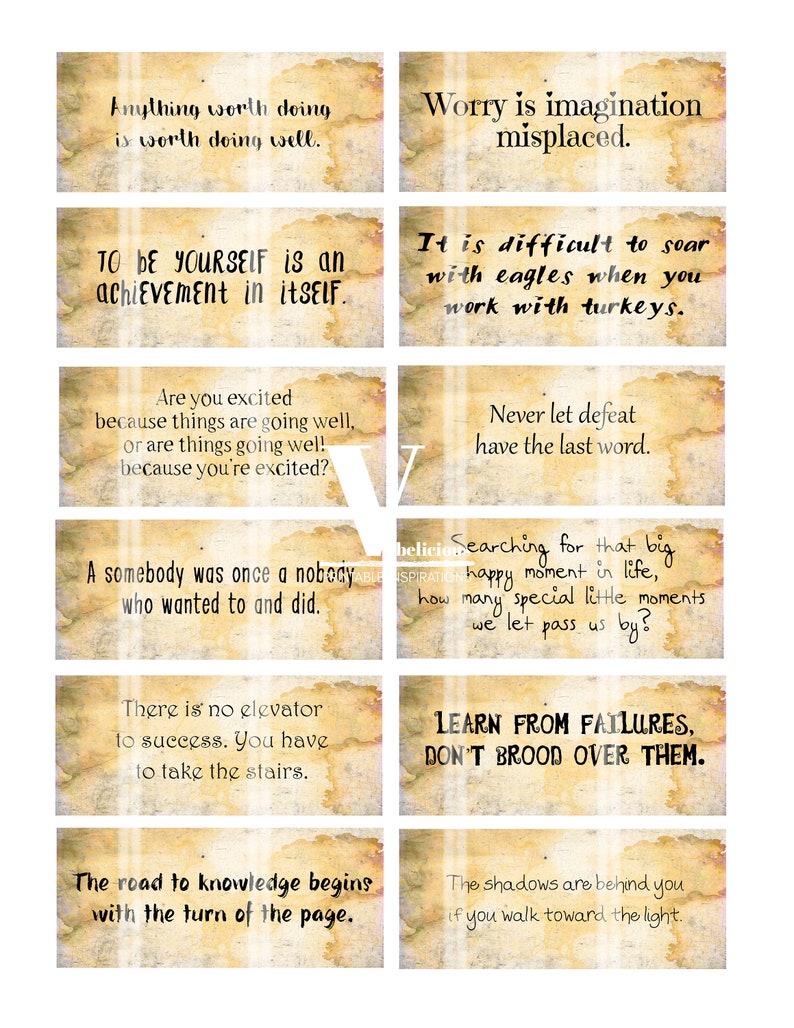 Anything worth doing
is worth doing well.
Worry is imagination
misplaced.
TO bE YOURSELF is an
achiEVEMENT in itSELF.
It is difficult to soar
with eagles when you
work with turkeys.
Are you excited
because things are going well,
or are things going well
because you're excited?
Never let defeat
have the last word.
A somebody was once a nobody
who wanted to and did.
Searching for that big
happy moment in life,
how many special little moments
we let pass us by?
V
belicious
PRINTABLE INSPIRATIONS
There is no elevator
to success. You have
to take the stairs.
LEARN FROM FAILURES,
DON'T BROOD OVER THEM.
The road to knowledge begins
with the turn of the page.
The shadows are behind you
if you walk toward the light.